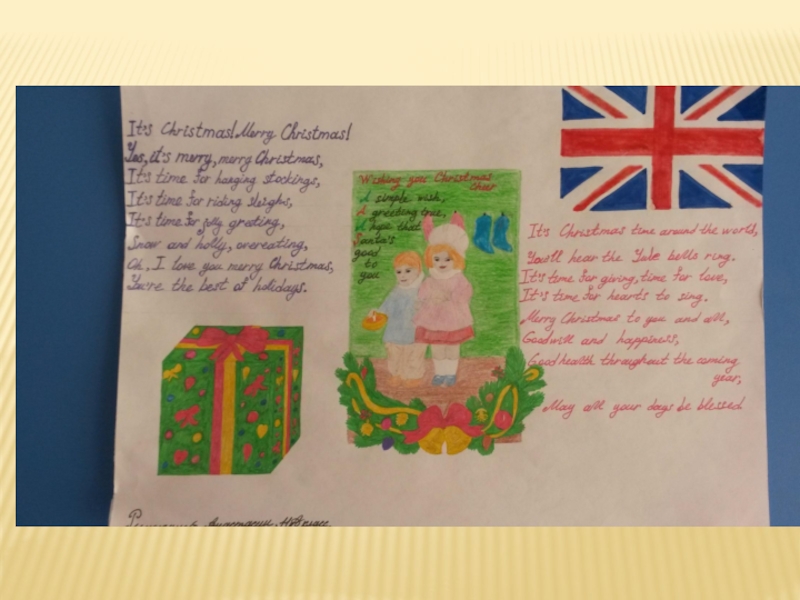 It's Christmas! Merry Christmas!
Yes, it's merry, merry Christmas,
It's time for hanging stockings,
It's time for riding sleighs,
It's time for jolly greeting,
Snow and holly, overeating,
Oh, I love you merry Christmas,
You're the best of holidays.
Wishing you Christmas
cheer
A simple wish,
A greeting true,
A hope that
Santa's
good
to
you
It's Christmas time around the world,
You'll hear the Yule bells ring.
It's time for giving, time for love,
It's time for hearts to sing.
Merry Christmas to you and all,
Goodwill and happiness,
Good health throughout the coming
year,
May all your days be blessed